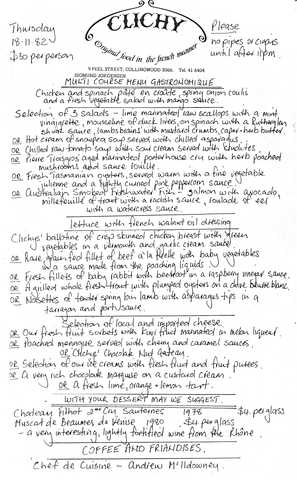 Thursday
18·11·82
$30 per person
CLICHY
Original food in the french manner
Please
no pipes or cigars
until after 11pm
9 PEEL STREET, COLLINGWOOD 3066. Tel 41 6404
SIGMUND JORGENSEN
MULTI COURSE MENU GASTRONOMIQUE
Chicken and spinach pâté en croûte, spring onion coulis
and a fresh vegetable salad with mango sauce
Selection of 3 salads - lime marinated raw scallops with a mint
vinegrette, mousseline of duck livers, on spinach with a Rutherglen
shiraz sauce, lambs brains with mustard crumbs, caper-herb butter
OR Hot cream of snowpea soup served with chilled asparagus
OR Chilled raw tomato soup with sour cream served with
OR Pierre Troisgros and marinated porterhouse cru with herb poached
mushrooms and sauce
OR Fresh Tasmanian oysters, served warm with a fine vegetable
julienne and a lightly curried pink peppercorn sauce
OR Australian Smoked freshwater fish - salmon with avocado,
millefeuille of trout with a radish sauce, roulade of eel
with a watercress sauce
lettuce with french walnut oil dressing
Clichys' ballotine of crisp skinned chicken breast with green
vegetables in a vermouth and garlic cream sauce
OR Rare, grain fed fillet of beef à la ficelle with baby vegetables
in a sauce made from the poaching liquids
OR Fresh fillets of baby rabbit with beetroot in a raspberry vinegar sauce.
OR A grilled whole fresh trout with plumped oysters on a chive beurre blanc.
OR Noisettes of tender spring bay lamb with asparagus tips in a
tarragon and port sauce
Selection of local and imported cheese.
OR Our fresh fruit sorbets with kiwi fruit marinated in melon liqueur.
OR Poached meringue served with cherry and caramel sauces.
OR Clichys' Chocolate Nut Gateau.
OR Selection of our ice creams with fresh fruit and fruit purees.
OR A very rich chocolate marquise on a custard cream.
OR A fresh lime, orange & lemon tart.
WITH YOUR DESSERT MAY WE SUGGEST
Chateau Filhot 2me Cru Sauternes 1978 $4. per glass
Muscat de Beaumes de Venise 1980 $4 per glass
- a very interesting, lightly fortified wine from the Rhône.
COFFEE AND FRIANDISES.
Chef de Cuisine - Andrew McIldowney.